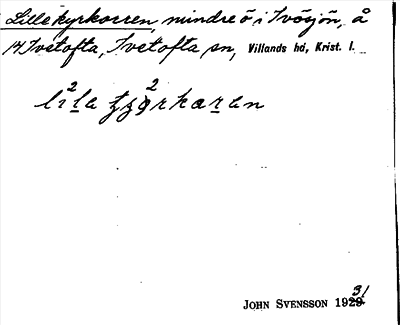 Lille kyrkorren, mindre ö i Ivösjön, å
14 Ivetofta, Ivetofta sn, Villands hd, Krist. l.
JOHN SVENSSON 1931